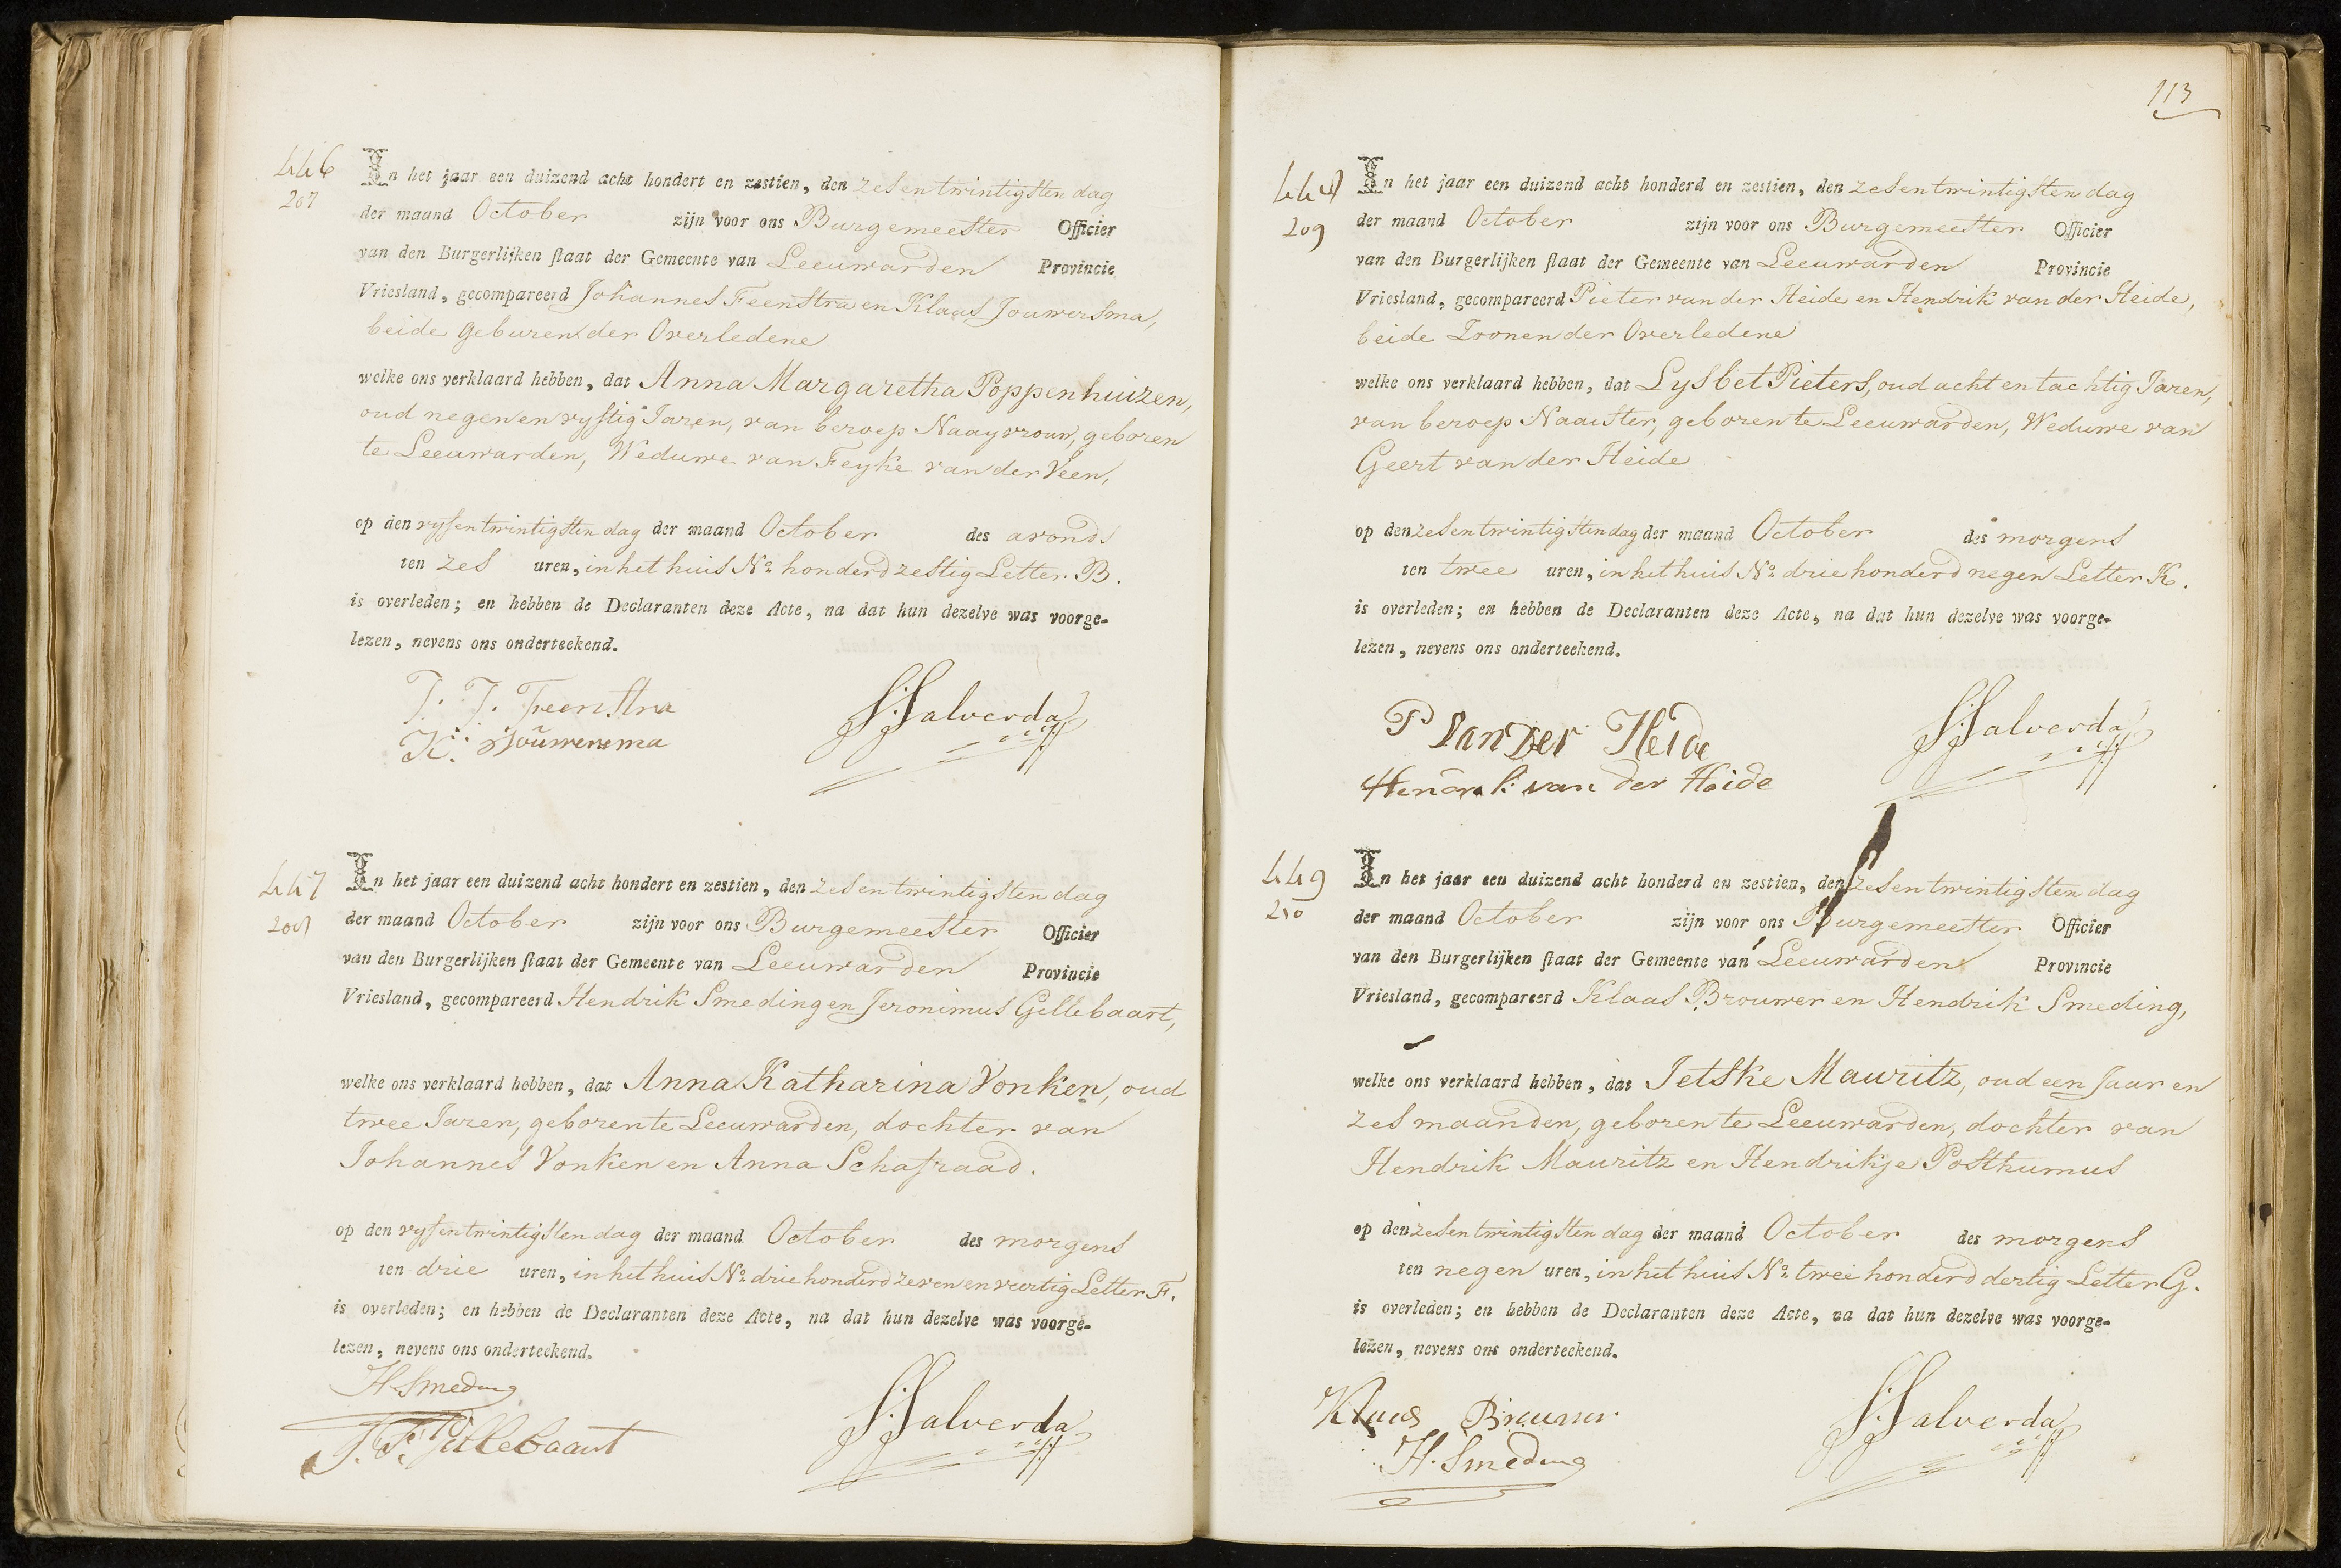 446
207
In het jaar een duizend acht hondert en zestien, den zesentwintigsten dag
der maand October zijn voor ons Burgemeester Officier
van den Burgerlijken staat der Gemeente van Leeuwarden Provincie
Vriesland, gecompareerd Johannes Feenstra en Klaas Jouwersma,
beide geburen der Overledene
welke ons verklaard hebben, dat Anna Margaretha Poppenhuizen,
oud negen en vyftig Jaren, van beroep Naayvrouw, geboren
te Leeuwarden, Weduwe van Feyke van der Veen,
op den vyfentwintigsten dag der maand October des avonds
ten zes uren, in het huis No. honderd zestig Letter B.
is overleden; en hebben de Declaranten deze Acte, na dat hun dezelve was voorge-
lezen, nevens ons onderteekend.
J. J. Feenstra
K: Jouwersma
S:Salverda
447
208
In het jaar een duizend acht hondert en zestien, den zesentwintigsten dag
der maand October zijn voor ons Burgemeester Officier
van den Burgerlijken staat der Gemeente van Leeuwarden Provincie
Vriesland, gecompareerd Hendrik Smeding en Jeronimus Gellebaart,
welke ons verklaard hebben, dat Anna Katharina Vonken, oud
twee Jaren, geboren te Leeuwarden, dochter van
Johannes Vonken en Anna Schafraad.
op den vyfentwintigsten dag der maand October des morgens
ten drie uren, in het huis No. drie honderd zeven en veertig Letter F.
is overleden; en hebben de Declaranten deze Acte, na dat hun dezelve was voorge-
lezen, nevens ons onderteekend.
H. Smeding
S:Salverda
113
448
209
In het jaar een duizend acht honderd en zestien, den zesentwintigsten dag
der maand October zijn voor ons Burgemeester Officier
van den Burgerlijken staat der Gemeente van Leeuwarden Provincie
Vriesland, gecompareerd Pieter van der Heide en Hendrik van der Heide,
beide Zoonen der Overledene
welke ons verklaard hebben, dat Lysbet Pieters, oud acht en tachtig Jaren,
van beroep Naaister, geboren te Leeuwarden, Weduwe van
Geert van der Heide
op den zesentwintigsten dag der maand October des morgens
ten twee uren, in het huis No. drie honderd negen Letter K.
is overleden; en hebben de Declaranten deze Acte, na dat hun dezelve was voorge-
lezen, nevens ons onderteekend.
P van der Heide
Hendrik van der Heide
S:Salverda
449
210
In het jaar een duizend acht honderd en zestien, den zesentwintigsten dag
der maand October zijn voor ons Burgemeester Officier
van den Burgerlijken staat der Gemeente van Leeuwarden Provincie
Vriesland, gecompareerd Klaas Brouwer en Hendrik Smeding,
welke ons verklaard hebben, dat Jetske Mauritz, oud een Jaar en
zes maanden, geboren te Leeuwarden, dochter van
Hendrik Mauritz en Hendrikje Posthumus
op den zesentwintigsten dag der maand October des morgens
ten negen uren, in het huis No. twee honderd dertig Letter G.
is overleden; en hebben de Declaranten deze Acte, na dat hun dezelve was voorge-
lezen, nevens ons onderteekend.
Klaas Brouwer
H. Smeding
S:Salverda